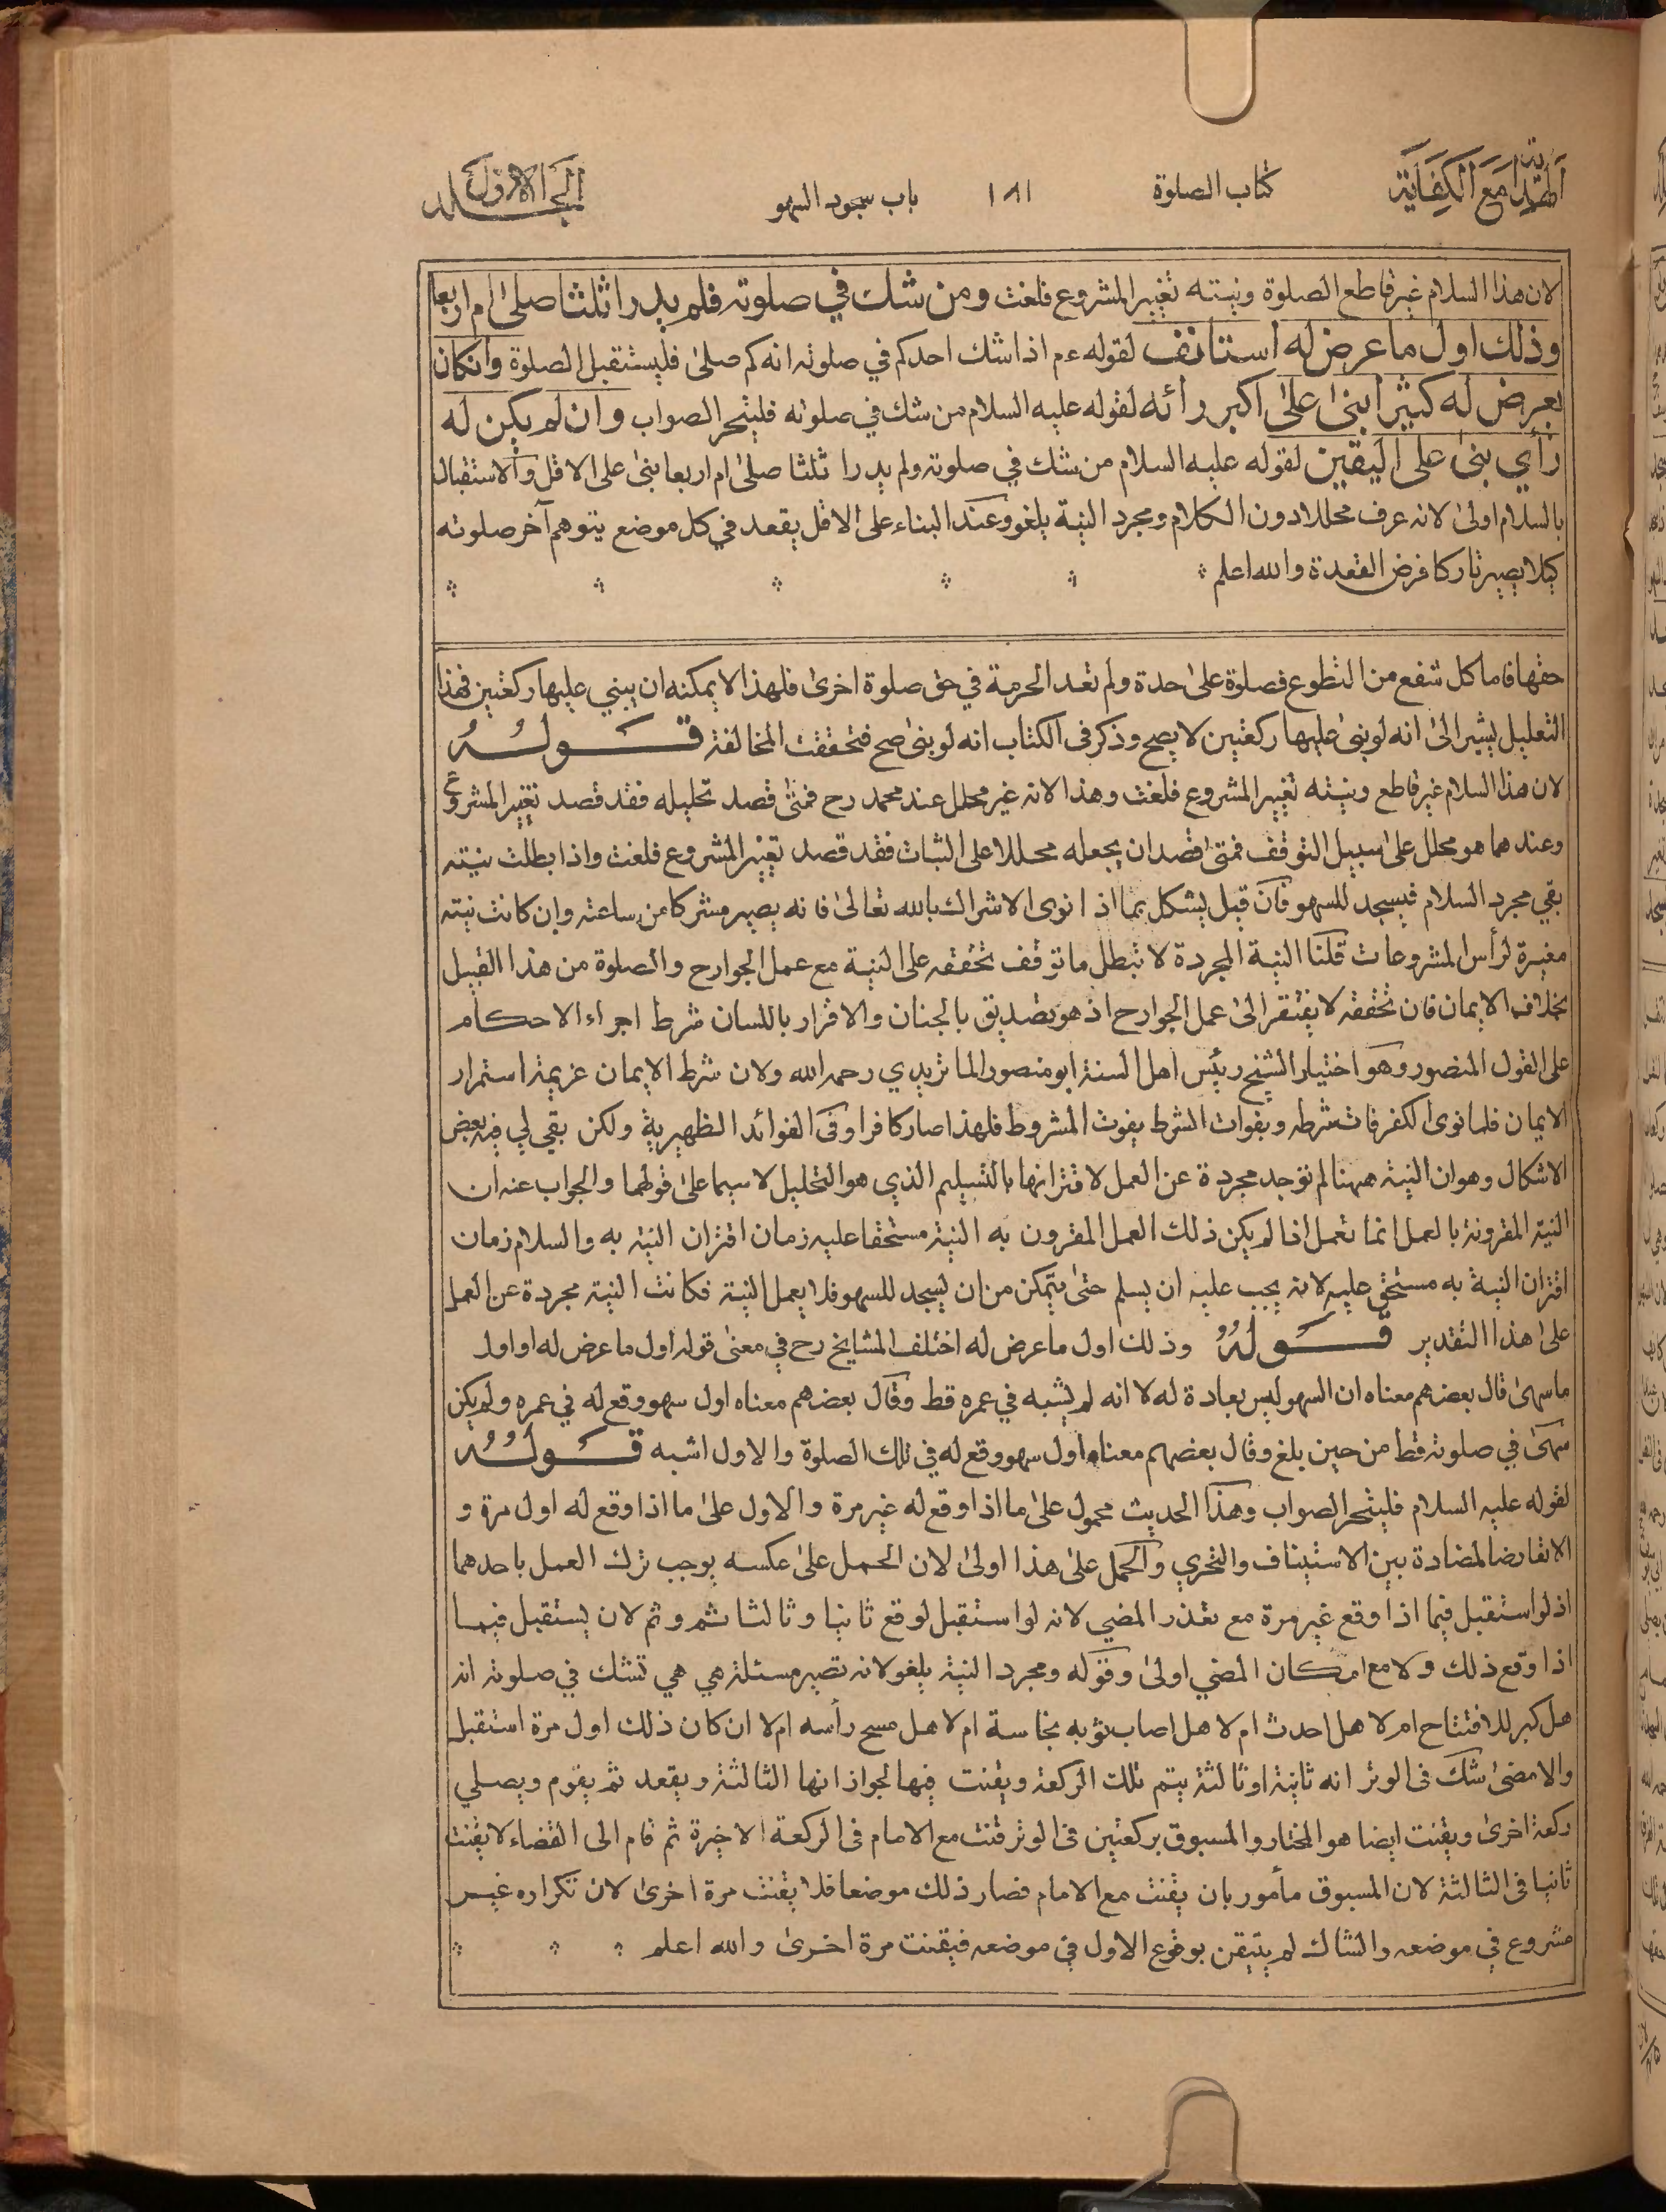 الهداية مع الكفاية
كتاب الصلوة
١٨١
باب سجود السهو
المجلد الاول
لان هذا السلام غير قاطع الصلوة ونيته تغيير المشروع فلغت ومن شك في صلوته فلم يدر اثلثا صلى ام اربعا
وذلك اول ما عرض له استانف لقوله عم اذا شك احدكم في صلوته انه كم صلى فليستقبل الصلوة وانكان
يعرض له كثيرا بنى على اكبر رأئه لقوله عليه السلام من شك في صلوته فليتحر الصواب وان لم يكن له
رأي بنى على اليقين لقوله عليه السلام من شك في صلوته ولم يدر ا ثلثا صلى ام اربعا بنى على الاقل والاستقبال
بالسلام اولى لانه عرف محللا دون الكلام ومجرد النية يلغو وعند البناء على الاقل يقعد في كل موضع يتوهم آخر صلوته
كيلا يصير تاركا فرض القعدة والله اعلم
حقها فاما كل شفع من التطوع فصلوة على حدة ولم تعد الحرمة في حق صلوة اخرى فلهذا لا يمكنه ان يبني عليها ركعتين فهذا
التعليل يشير الى انه لو بنى عليها ركعتين لا يصح وذكر في الكتاب انه لو بنى صح فتحققت المخالفة قوله
لان هذا السلام غير قاطع ونيته تغيير المشروع فلغت وهذا لانه غير محلل عند محمد رح فمتى قصد تحليله فقد قصد تغيير المشروع
وعندهما هو محلل على سبيل التوقف فمتى قصد ان يجعله محللا على الثبات فقد قصد تغيير المشروع فلغت واذا بطلت نيته
بقي مجرد السلام فيسجد للسهو فان قيل يشكل بما اذا نوى الاشراك بالله تعالى فانه يصير مشركا من ساعته وان كانت نيته
مغيرة لرأس المشروعات قلنا النية المجردة لا تبطل ما توقف تحققه على النية مع عمل الجوارح والصلوة من هذا القبيل
بخلاف الايمان فان تحققه لا يفتقر الى عمل الجوارح اذ هو تصديق بالجنان والاقرار باللسان شرط اجراء الاحكام
على القول المنصور وهو اختيار الشيخ رئيس اهل السنة ابو منصور الماتريدي رحمه الله ولان شرط الايمان عزيمة استمرار
الايمان فلما نوى الكفر فات شرطه وبفوات الشرط يفوت المشروط فلهذا صار كافرا وفي الفوائد الظهيرية ولكن بقي لي فيه بعض
الاشكال وهو ان النية ههنا لم توجد مجردة عن العمل لاقترانها بالتسليم الذي هو التحليل لا سيما على قولهما والجواب عنه ان
النية المقرونة بالعمل انما تعمل اذا لم يكن ذلك العمل المقرون به النية مستحقا عليه زمان اقتران النية به والسلام زمان
اقتران النية به مستحق عليه لانه يجب عليه ان يسلم حتى يتمكن من ان يسجد للسهو فلا يعمل النية فكانت النية مجردة عن العمل
على هذا التقدير قوله وذلك اول ما عرض له اختلف المشايخ رح في معنى قوله اول ما عرض له او اول
ما سهى قال بعضهم معناه ان السهو ليس بعادة له لا انه لم يشبه في عمره قط وقال بعضهم معناه اول سهو وقع له في عمره ولم يكن
سهى في صلوته قط من حين بلغ وقال بعضهم معناه اول سهو وقع له في تلك الصلوة والاول اشبه قوله
لقوله عليه السلام فليتحر الصواب وهذا الحديث محمول على ما اذا وقع له غير مرة والاول على ما اذا وقع له اول مرة و
الا تفا رضا لمضادة بين الاستيناف والتحري والحمل على هذا اولى لان الحمل على عكسه يوجب ترك العمل باحدهما
اذ لو استقبل فيما اذا وقع غير مرة مع تعذر المضي لانه لو استقبل لوقع ثانيا وثالثا ثم وثم لان يستقبل فيما
اذا وقع ذلك ولا مع امكان المضي اولى وقوله ومجرد النية يلغو لانه تصير مسئلة هي هي تشك في صلوته انه
هل كبر للافتتاح ام لا هل احدث ام لا هل اصاب ثوبه نجاسة ام لا هل مسح رأسه ام لا ان كان ذلك اول مرة استقبل
والا مضى شك في الوتر انه ثانية او ثالثة يتم تلك الركعة ويقنت فيها لجواز انها الثالثة ويقعد ثم يقوم ويصلي
ركعة اخرى ويقنت ايضا هو المختار والمسبوق بركعتين في الوتر قنت مع الامام في الركعة الاخيرة ثم قام الى القضاء لا يقنت
ثانيا في الثالثة لان المسبوق مأمور بان يقنت مع الامام فصار ذلك موضعا فلا يقنت مرة اخرى لان تكراره غير
مشروع في موضعه والشاك لم يتيقن بوقوع الاول في موضعه فيقنت مرة اخرى والله اعلم